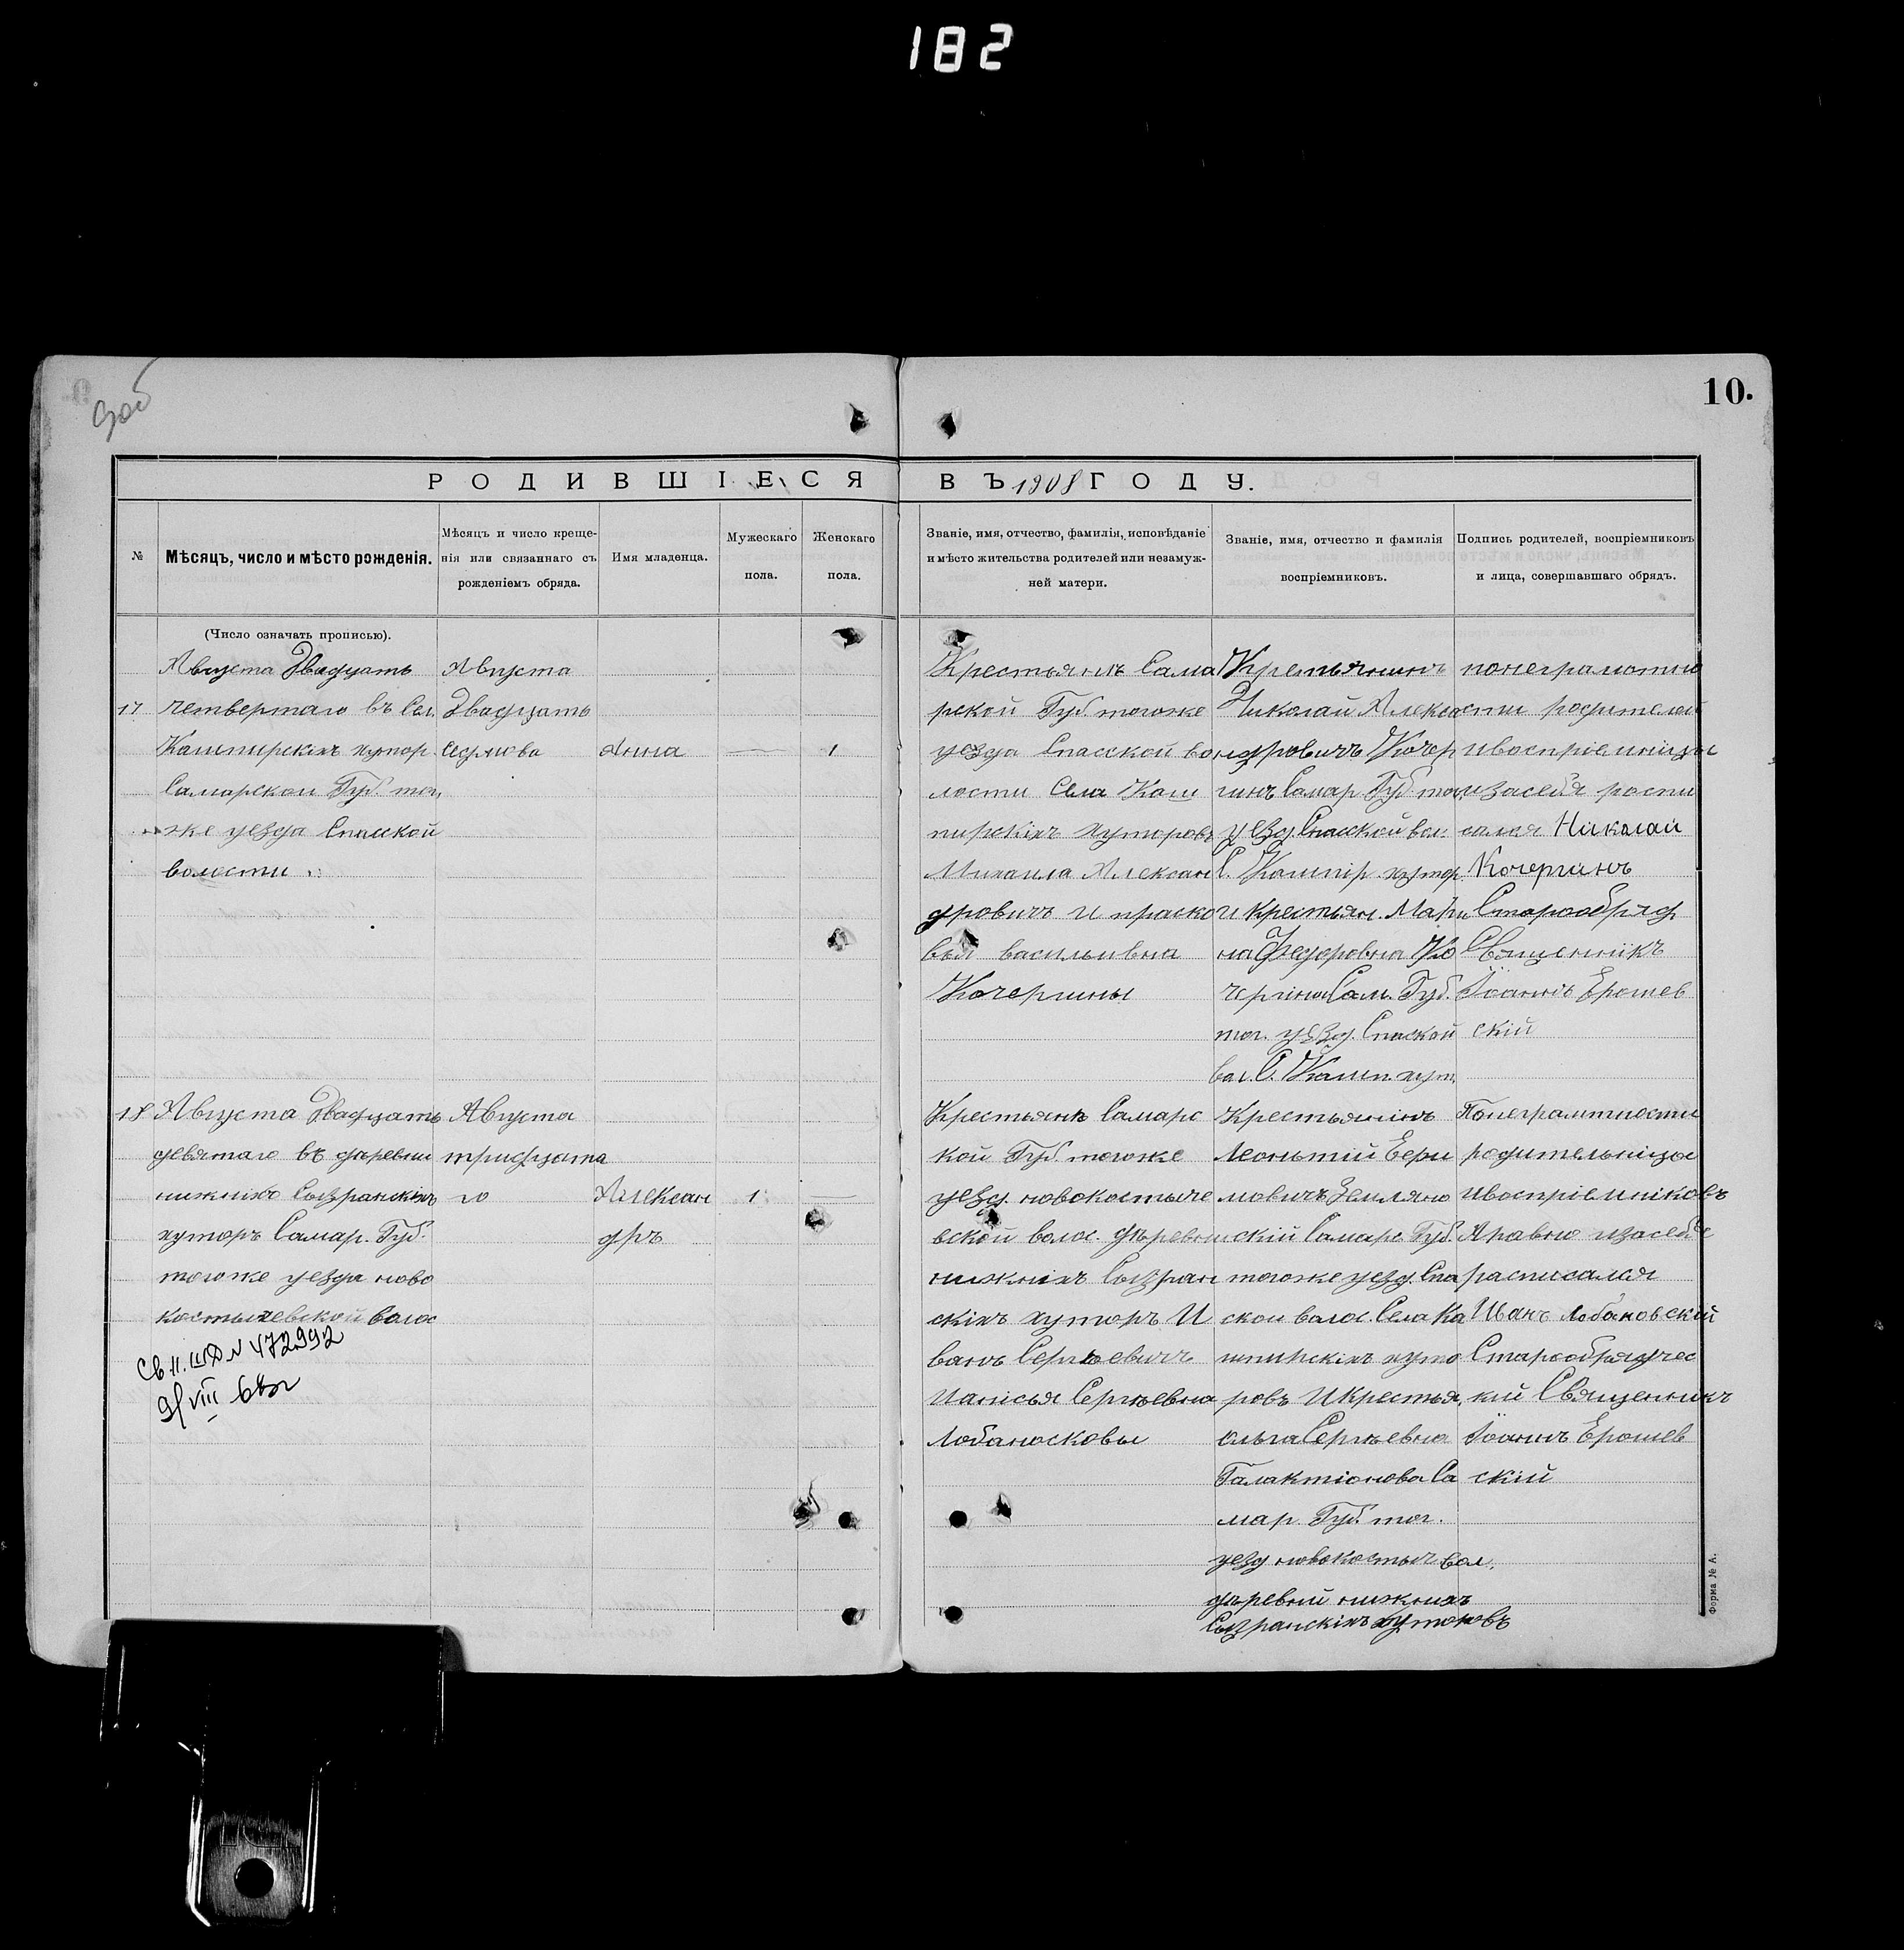 182
10.
РОДИВШІЕСЯ ВЪ 1908 ГОДУ.
№
Мѣсяцъ, число и мѣсто рожденія.
Мѣсяцъ и число креще-
нія или связаннаго съ
рожденіемъ обряда.
Имя младенца.
Мужескаго
пола.
Женскаго
пола.
Званіе, имя, отчество, фамилія, исповѣданіе
и мѣсто жительства родителей или незамуж-
ней матери.
Званіе, имя, отчество и фамилія
воспріемниковъ.
Подпись родителей, воспріемниковъ
и лица, совершавшаго обрядъ.
(Число означать прописью).
17
Августа Двадцать
четвертаго въ Сел.
Кашпирскихъ хутор.
Самарской Губ. тог
же уезда Спасской
волости
Августа
Двадцать
седмова
Анна
—
1
Крестьянѣ Сама
рской Губ. тогоже
уезда Спасской во
лости Села Каш
пирскихъ хуторовъ
Михаила Алексан
дровичъ и праско
вья васильивна
Кочергины
Крестьянинъ
Николай Алекса
ндровичъ Кочер
гинъ Самар. Губ. тог
уезд. Спасской вол.
С. Кашпир. хутор.
и крестьян. Мари
на Федоровна Ко
чергина Сам. Губ.
тог. уезд. Спаской
вол. С. Кашп. хут.
понеграмотно
сти родителей
ивоспріемницы
изасебя распи
сался Николай
Кочергинъ
Старообряд
Священникъ
Іоаннъ Ерошев
скій
18
Августа Двадцать
девятаго въ деревни
нижнихъ Сызранскихъ
хуторъ Самар. Губ.
тогоже уезда ново
костычевской волос
Св. н. ШД № 472992
9/VIII 68г
Августа
тридцата
го
Александръ
1
—
Крестьянѣ Самарс
кой Губ. тогоже
уезд. новокостыче
вской волос. деревни
нижнихъ Сызран
скихъ хуторъ И
ванъ Сергѣевичъ
Ианисья Сергѣевна
Лобаносковы
Крестьянинъ
Леонтий Ерми
ловичъ Земляно
скій Самарс. Губ.
тогоже уезд. Спа
ской волос. Села Ка
шпирскихъ хуто
ровъ И крестья.
Ольга Сергѣевна
Галактіонова Са
мар. Губ. тог.
уезд новокостыч вол.
деревни нижнихъ
Сызранскихъ хуторовъ
Понеграмтности
родительницы
ивоспріемниковъ
Аравно изасебе
расписался
Иванъ Лобановский
Старообрядчес
кий Священникъ
Іоаннъ Ерошев
скій
Форма № А.